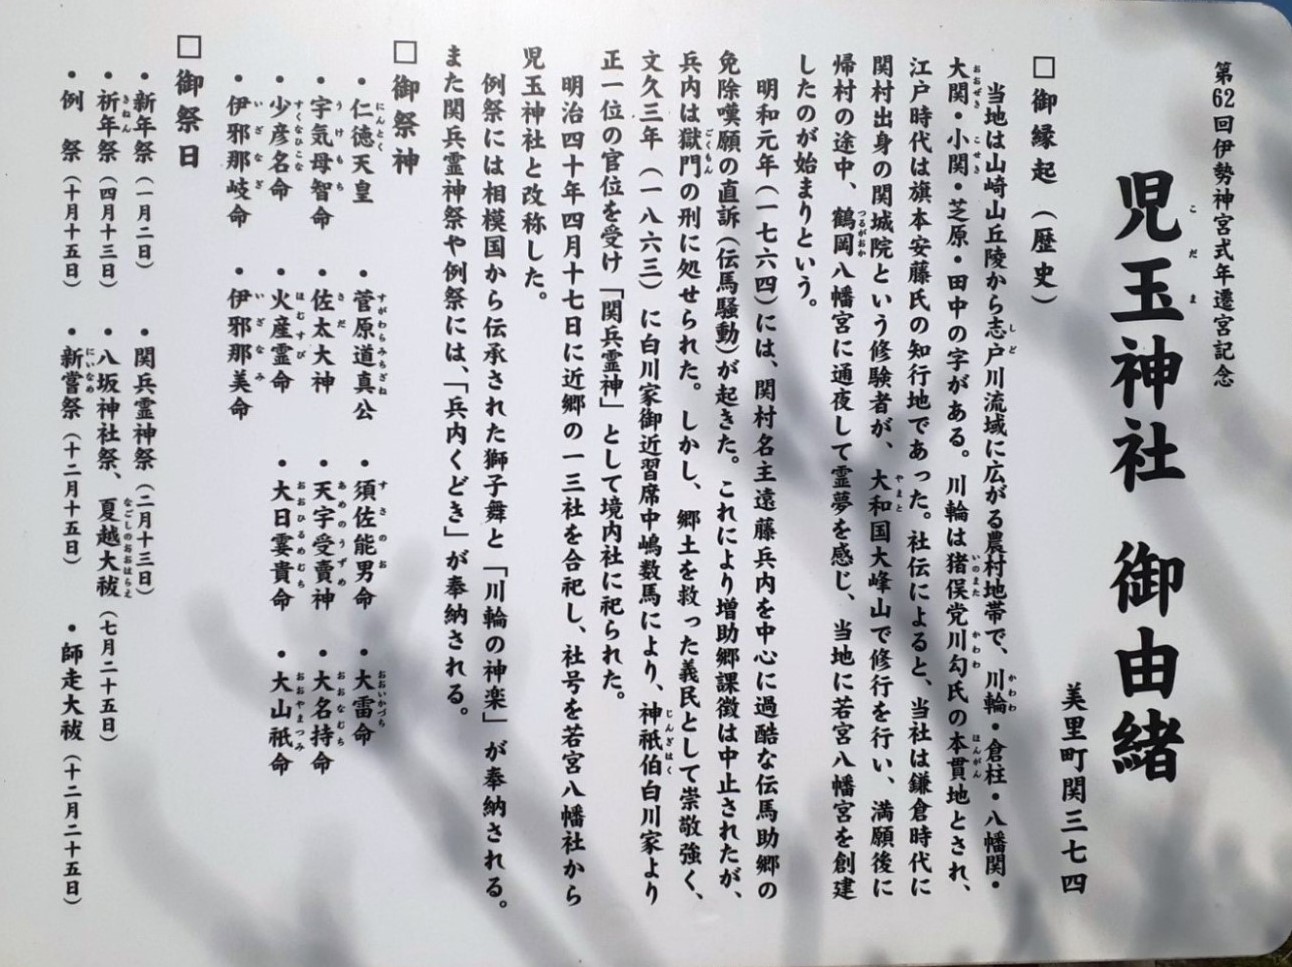 第62回伊勢神宮式年遷宮記念
児玉神社 御由緒
美里町関三七四
□御縁起(歴史)
当地は山崎山丘陵から志戸川流域に広がる農村地帯で、川輪・倉柱・八幡関・
大関・小関・芝原・田中の字がある。川輪は猪俣党川勾氏の本貫地とされ、
江戸時代は旗本安藤氏の知行地であった。社伝によると、当社は鎌倉時代に
関村出身の関城院という修験者が、大和国大峰山で修行を行い、満願後に
帰村の途中、鶴岡八幡宮に通夜して霊夢を感じ、当地に若宮八幡宮を創建
したのが始まりという。
明和元年(一七六四)には、関村名主遠藤兵内を中心に過酷な伝馬助郷の
免除嘆願の直訴(伝馬騒動)が起きた。これにより増助郷課徴は中止されたが、
兵内は獄門の刑に処せられた。しかし、郷土を救った義民として崇敬強く、
文久三年(一八六三)に白川家御近習席中嶋数馬により、神祇伯白川家より
正一位の官位を受け「関兵霊神」として境内社に祀られた。
明治四十年四月十七日に近郷の一三社を合祀し、社号を若宮八幡社から
児玉神社と改称した。
例祭には相模国から伝承された獅子舞と「川輪の神楽」が奉納される。
また関兵霊神祭や例祭には、「兵内くどき」が奉納される。
□御祭神
・仁徳天皇 ・菅原道真公 ・須佐能男命 ・大雷命
・宇気母智命 ・佐太大神 ・天宇受賣神 ・大名持命
・少彦名命 ・火産霊命 ・大日孁貴命 ・大山祇命
・伊邪那岐命 ・伊邪那美命
□御祭日
・新年祭(一月二日) ・関兵霊神祭(二月十三日)
・祈年祭(四月十三日) ・八坂神社祭、夏越大祓(七月二十五日)
・例 祭(十月十五日) ・新嘗祭(十二月十五日) ・師走大祓(十二月二十五日)